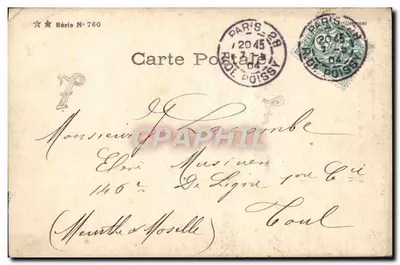 ★★ Série N° 760
Carte Postale
PARIS-28
20 45
04
R. DE POISSY
PARIS-28
20 45
04
R. DE POISSY
CPAPHIL.com
Monsieur
Elève Musicien
146e De Ligne
Toul
(Meurthe & Moselle)